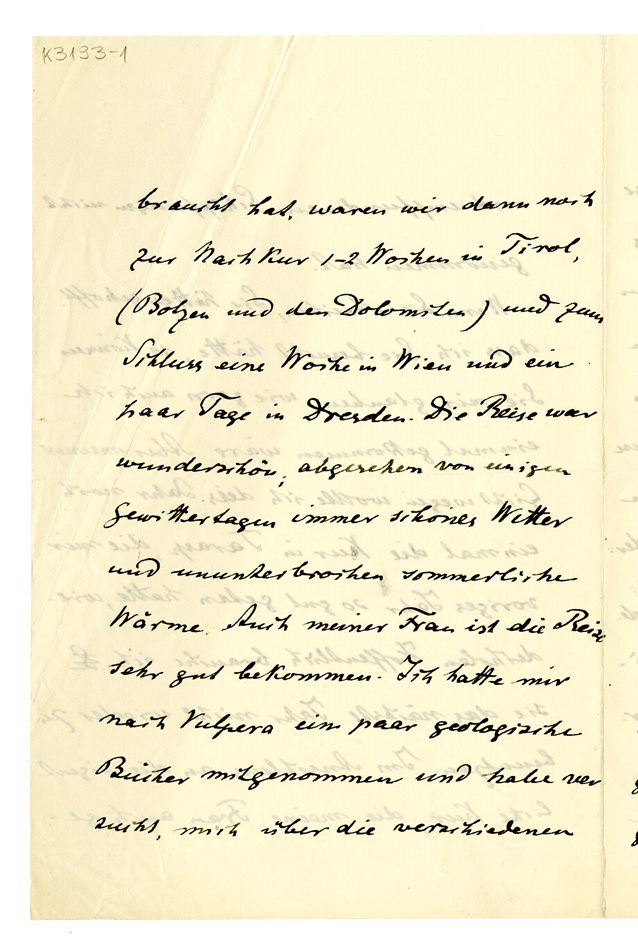 K3193-1
braucht hat, waren wir dann noch
zur Nachkur 1-2 Wochen in Tirol,
(Bolzen und den Dolomiten) und zum
Schluss eine Woche in Wien und ein
paar Tage in Dresden. Die Reise war
wunderschön, abgesehen von einigen
Gewittertagen immer schönes Wetter
und ununterbrochen sommerliche
Wärme. Auch meiner Frau ist die Reise
sehr gut bekommen. Ich hatte mir
nach Vulpera ein paar geologische
Bücher mitgenommen und habe ver
sucht, mich über die verschiedenen